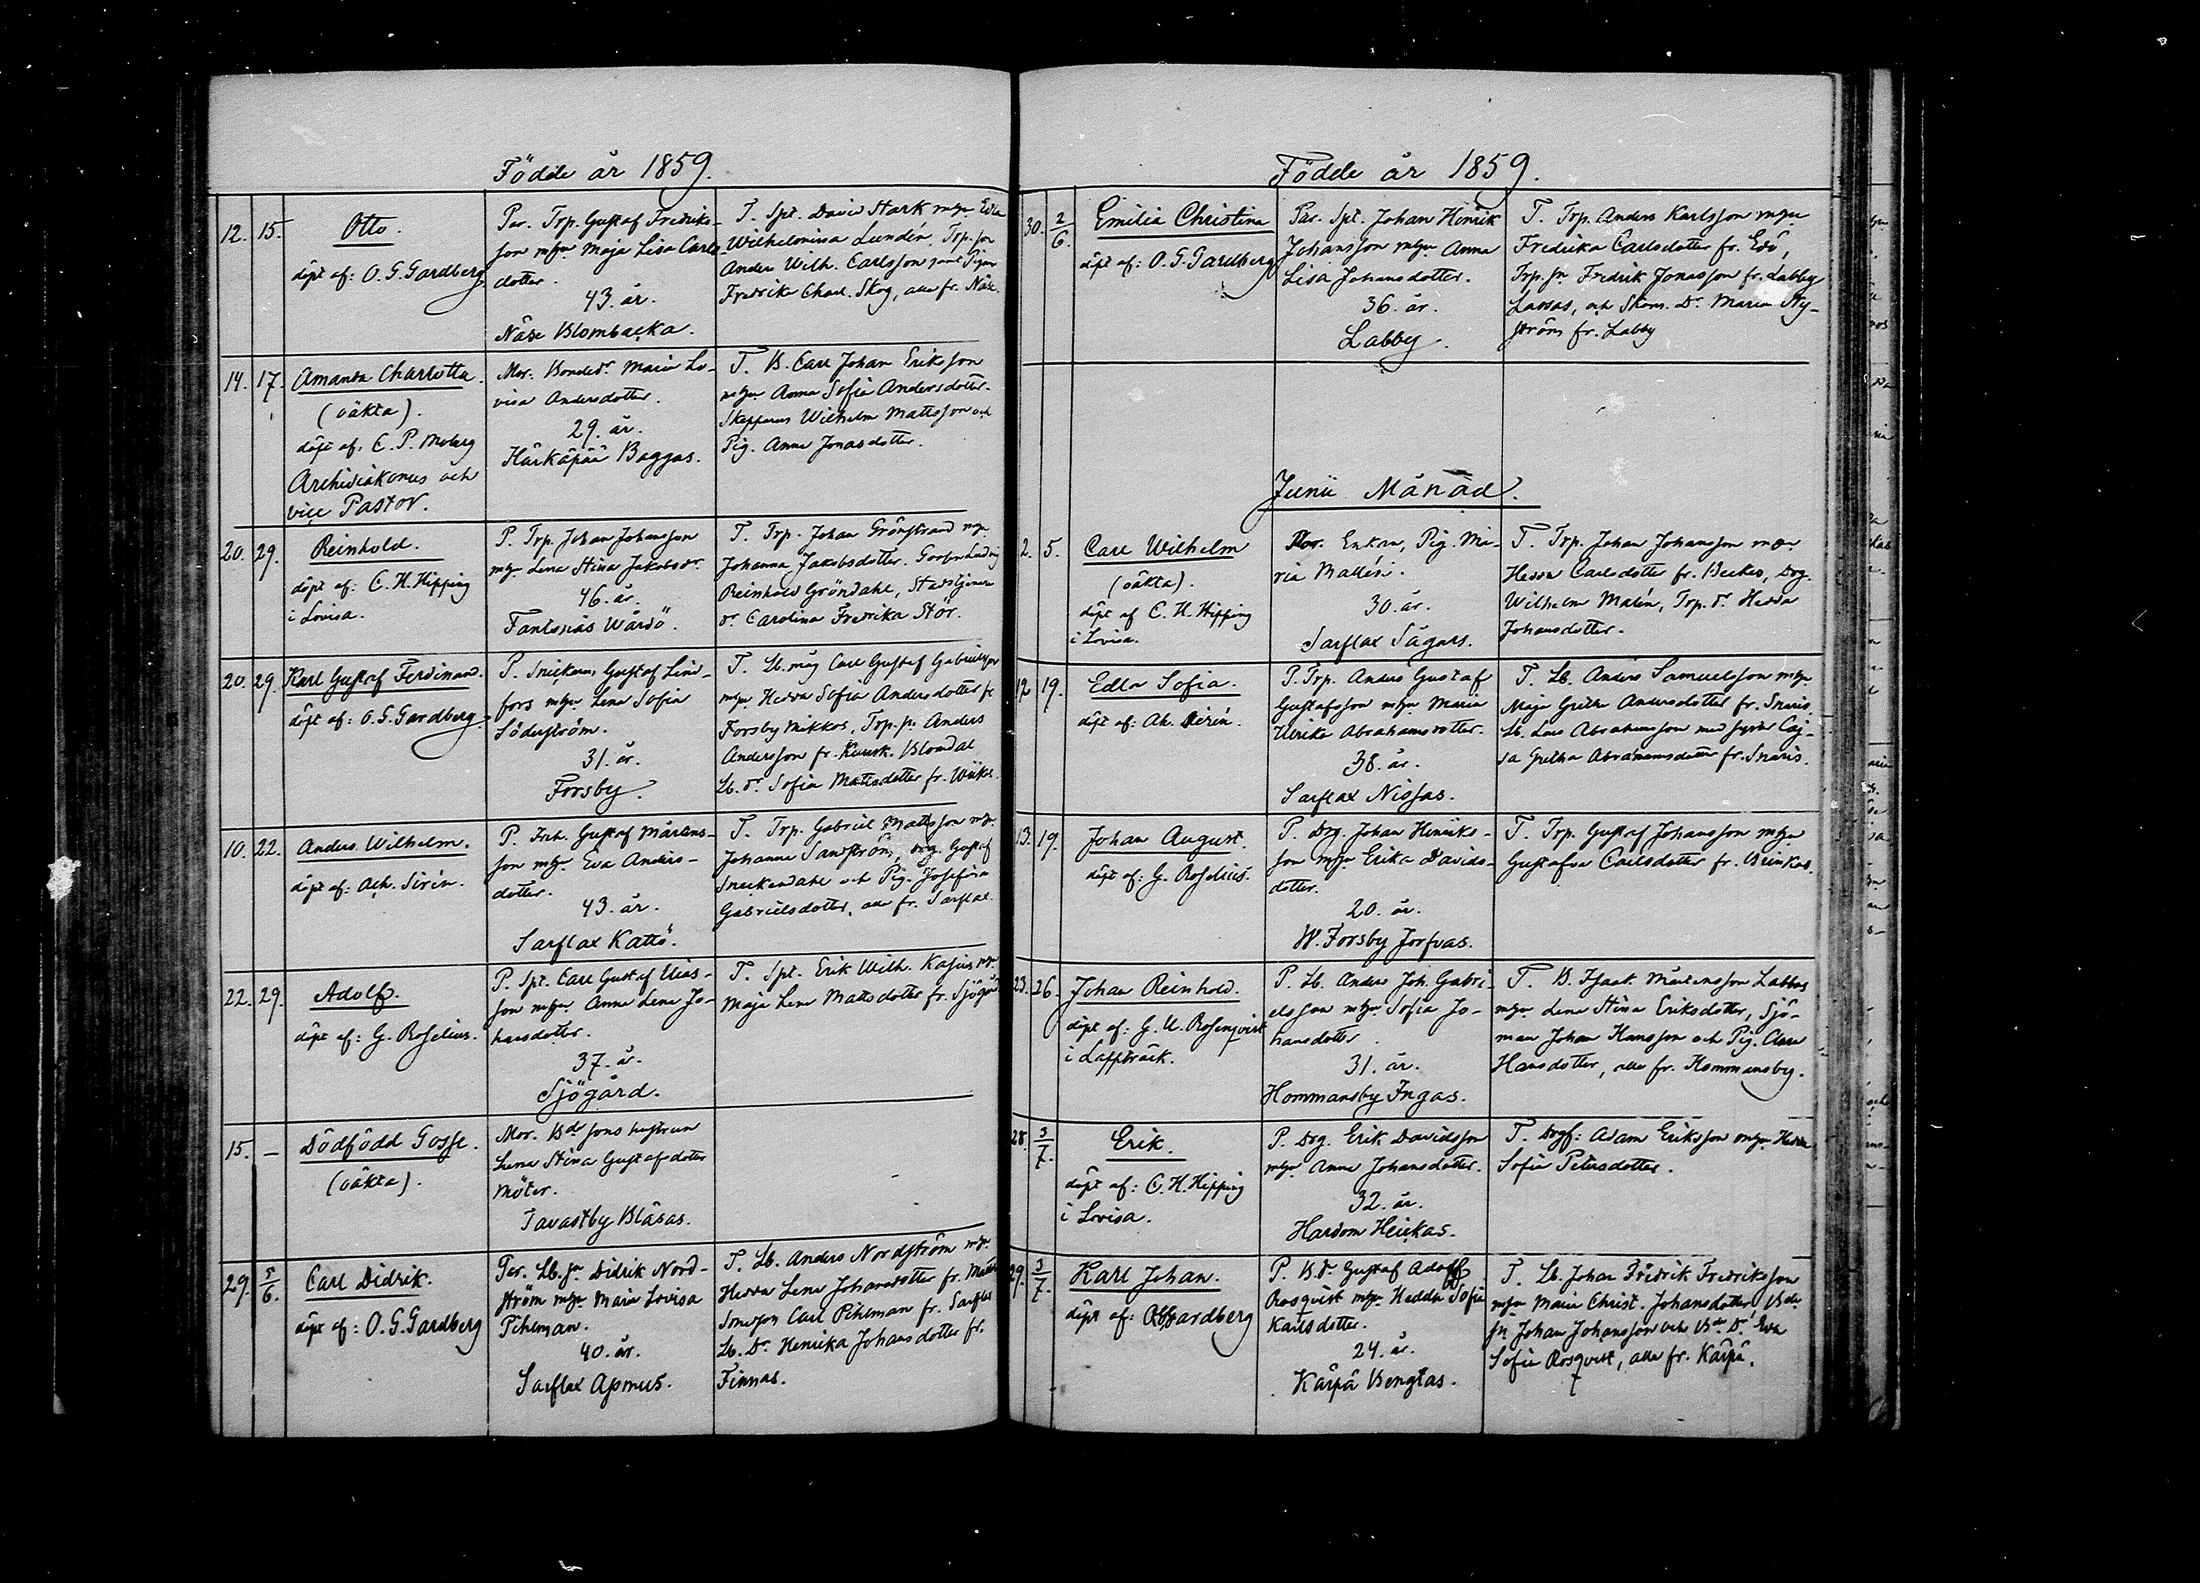 Födde år 1859.
12. 15. Otto.
döpt af: O. G. Gardberg
Par. Trp. Gustaf Fredriks-
son m hu Maja Lisa Carls-
dotter.
43. år.
Näse Blombacka.
T. Spt. David Stark m hu Edla
Wilhelmina Lundén, Trp. son
Anders Wilh. Carlsson samt Pigan
Fredrika Charl. Skog, alla fr. Näse.
14. 17. Amanda Charlotta.
(oäkta).
döpt af: C. P. Moberg
Archidiakonus och
vice Pastor.
Mor. Bonded:r Maria Lo-
visa Andersdotter.
29. år.
Härkäpää Baggas.
T. B. Carl Johan Eriksson
m hu Anna Sofia Andersdotter.
Skepparen Wilhelm Mattsson och
Pig. Anna Jonasdotter.
20. 29. Reinhold.
döpt af: C. H. Hipping
i Lovisa.
P. Trp. Johan Johansson
m hu Lena Stina Jakobsd:r.
46. år.
Fantsnäs Wårdö.
T. Trp. Johan Grönstrand m hu
Johanna Jakobsdotter. Ludvig
Reinhold Gröndahl,
d:r Carolina Fredrika Stör.
20. 29. Karl Gustaf Ferdinand.
döpt af: O. G. Gardberg.
P. Snickaren Gustaf Lind-
fors m hu Lena Sofia
Söderström.
31. år.
Forsby.
T. Lb. måg Carl Gustaf Gabrielsson
m hu Hedda Sofia Andersdotter fr
Forsby Mikkos, Trp. sn. Anders
Andersson fr. Kuusk. Blomdal
Lb. d:r Sofia Mattsdotter fr. Wiiks.
10. 22. Anders Wilhelm.
döpt af: Ach. Sirén.
P. Inh. Gustaf Mårtens-
son m hu Eva Anders-
dotter.
43. år.
Sarflax Kattö.
T. Trp. Gabriel Mattsson m hu
Johanna Sandström, drg. Gustaf
Sneckendahl och Pig. Josefina
Gabrielsdotter, alla fr. Sarflax.
22. 29. Adolf.
döpt af: G. Roselius.
P. Spt. Carl Gustaf Elias-
son m hu Anna Lena Jo-
hansdotter.
37. år.
Sjögård.
T. Spt. Erik Wilh. Kasius m hu
Maja Lena Mattsdotter fr. Sjögård
15. — Dödfödd Gosse.
(oäkta).
Mor. Bde sons hustrun
Lena Stina Gustafsdotter
Möter.
Tavastby Blåsas.
29. 5/6. Carl Didrik.
döpt af: O. G. Gardberg
Par. Lb. sn Didrik Nord-
ström m hu Maria Lovisa
Pihlman.
40. år.
Sarflax Asmus.
T. Lb. Anders Nordström m hu
Hedda Lena Johansdotter fr.
Carl Pihlman fr. Sarflax
Lb. D:r Henrika Johansdotter fr.
Finnas.
Födde år 1859.
30. 2/6. Emilia Christina
döpt af: O. G. Gardberg
Par. Spt. Johan Henrik
Johansson m hu Anna
Lisa Johansdotter.
36. år.
Labby.
T. Trp. Anders Karlsson m hu
Fredrika Carlsdotter fr. Edö,
Trp. sn Fredrik Jonasson fr. Labby
Lassas, och Skom. D:r Maria Ny-
ström fr. Labby
Junii Månad.
2. 5. Carl Wilhelm
(oäkta).
döpt af C. H. Hipping
i Lovisa.
Mor. Enkan, Pig. Ma-
ria Mallén.
30. år.
Sarflax Sågars.
T. Trp. Johan Johansson m hu
Hedda Carlsdotter fr. Beckas, Drg.
Wilhelm Malén, Trp. d:r Hedda
Johansdotter.
12 19. Edla Sofia.
döpt af: Ak. Sirén.
P. Trp. Anders Gustaf
Gustafsson m hu Maria
Ulrika Abrahamsdotter.
38. år.
Sarflax Nissas.
T. Lb. Anders Samuelsson m hu
Maja Gretha Andersdotter fr. Snäris.
Lb. Lars Abrahamsson med syster Caj-
sa Gretha Abrahamsdotter fr. Snäris.
13. 19. Johan August.
döpt af: G. Roselius.
P. Drg. Johan Henriks-
son m hu Erika Davids-
dotter.
20. år.
W. Forsby Jorfvas.
T. Trp. Gustaf Johansson m hu
Gustafva Carlsdotter fr. Brinkas.
23. 26. Johan Reinhold.
döpt af: G. U. Rosenqvist
i Lappträsk.
P. Lb. Anders Joh. Gabri-
elsson m hu Sofia Jo-
hansdotter.
31. år.
Hommansby Ingas.
T. B. Isaak Mårtensson Labbas
m hu Lena Stina Eriksdotter, Sjö-
man Johan Hansson och Pig. Clara
Hansdotter, alla fr. Hommansby.
28. 3/7. Erik.
döpt af: C. H. Hipping
i Lovisa.
P. Drg. Erik Davidsson
m hu Anna Johansdotter.
32. år.
Hardom Heickas.
T. Drgf: Adam Eriksson m hu Hedda
Sofia Petersdotter.
29. 3/7. Karl Johan.
döpt af: O G Gardberg
P. B. d. Gustaf Adolf
Rosqvist m hu Hedda Sofia
Karlsdotter.
24. år.
Kärpä Bengtas.
T. Lb. Johan Fredrik Fredriksson
m hu Maria Christ. Johansdotter, Bde
sn. Johan Johansson och Bde D:r Eva
Sofia Rosqvist, alla fr. Kärpä.